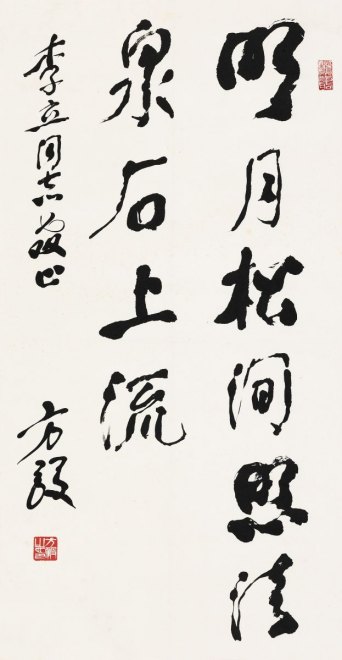 明月松间照清
泉石上流
李立同志正
方毅